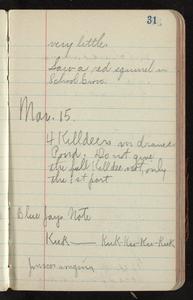 31
very little.
Saw a red squirrel in
School Grove.
Mar. 15.
4 Killdeers in drained
Pond. Do not give
the full Killdee note, only
the 1st part
Blue Jays Note
Kuk—— Kuk-Kuk-Kuk-Kuk